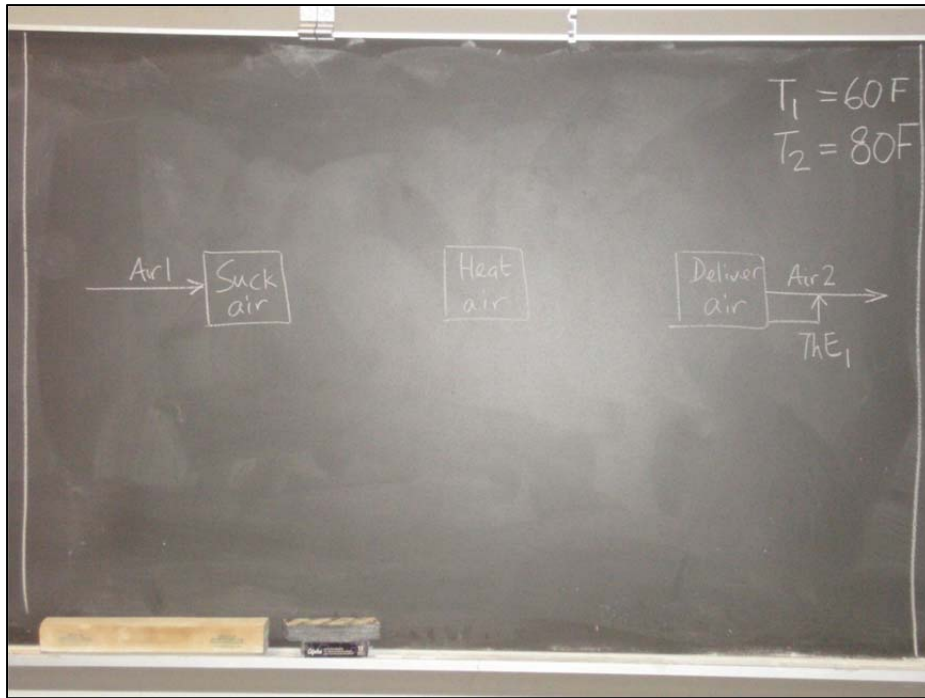 T₁ = 60F
T₂ = 80F
Air1
Suck
air
Heat
air
Deliver
air
Air2
ThE₁